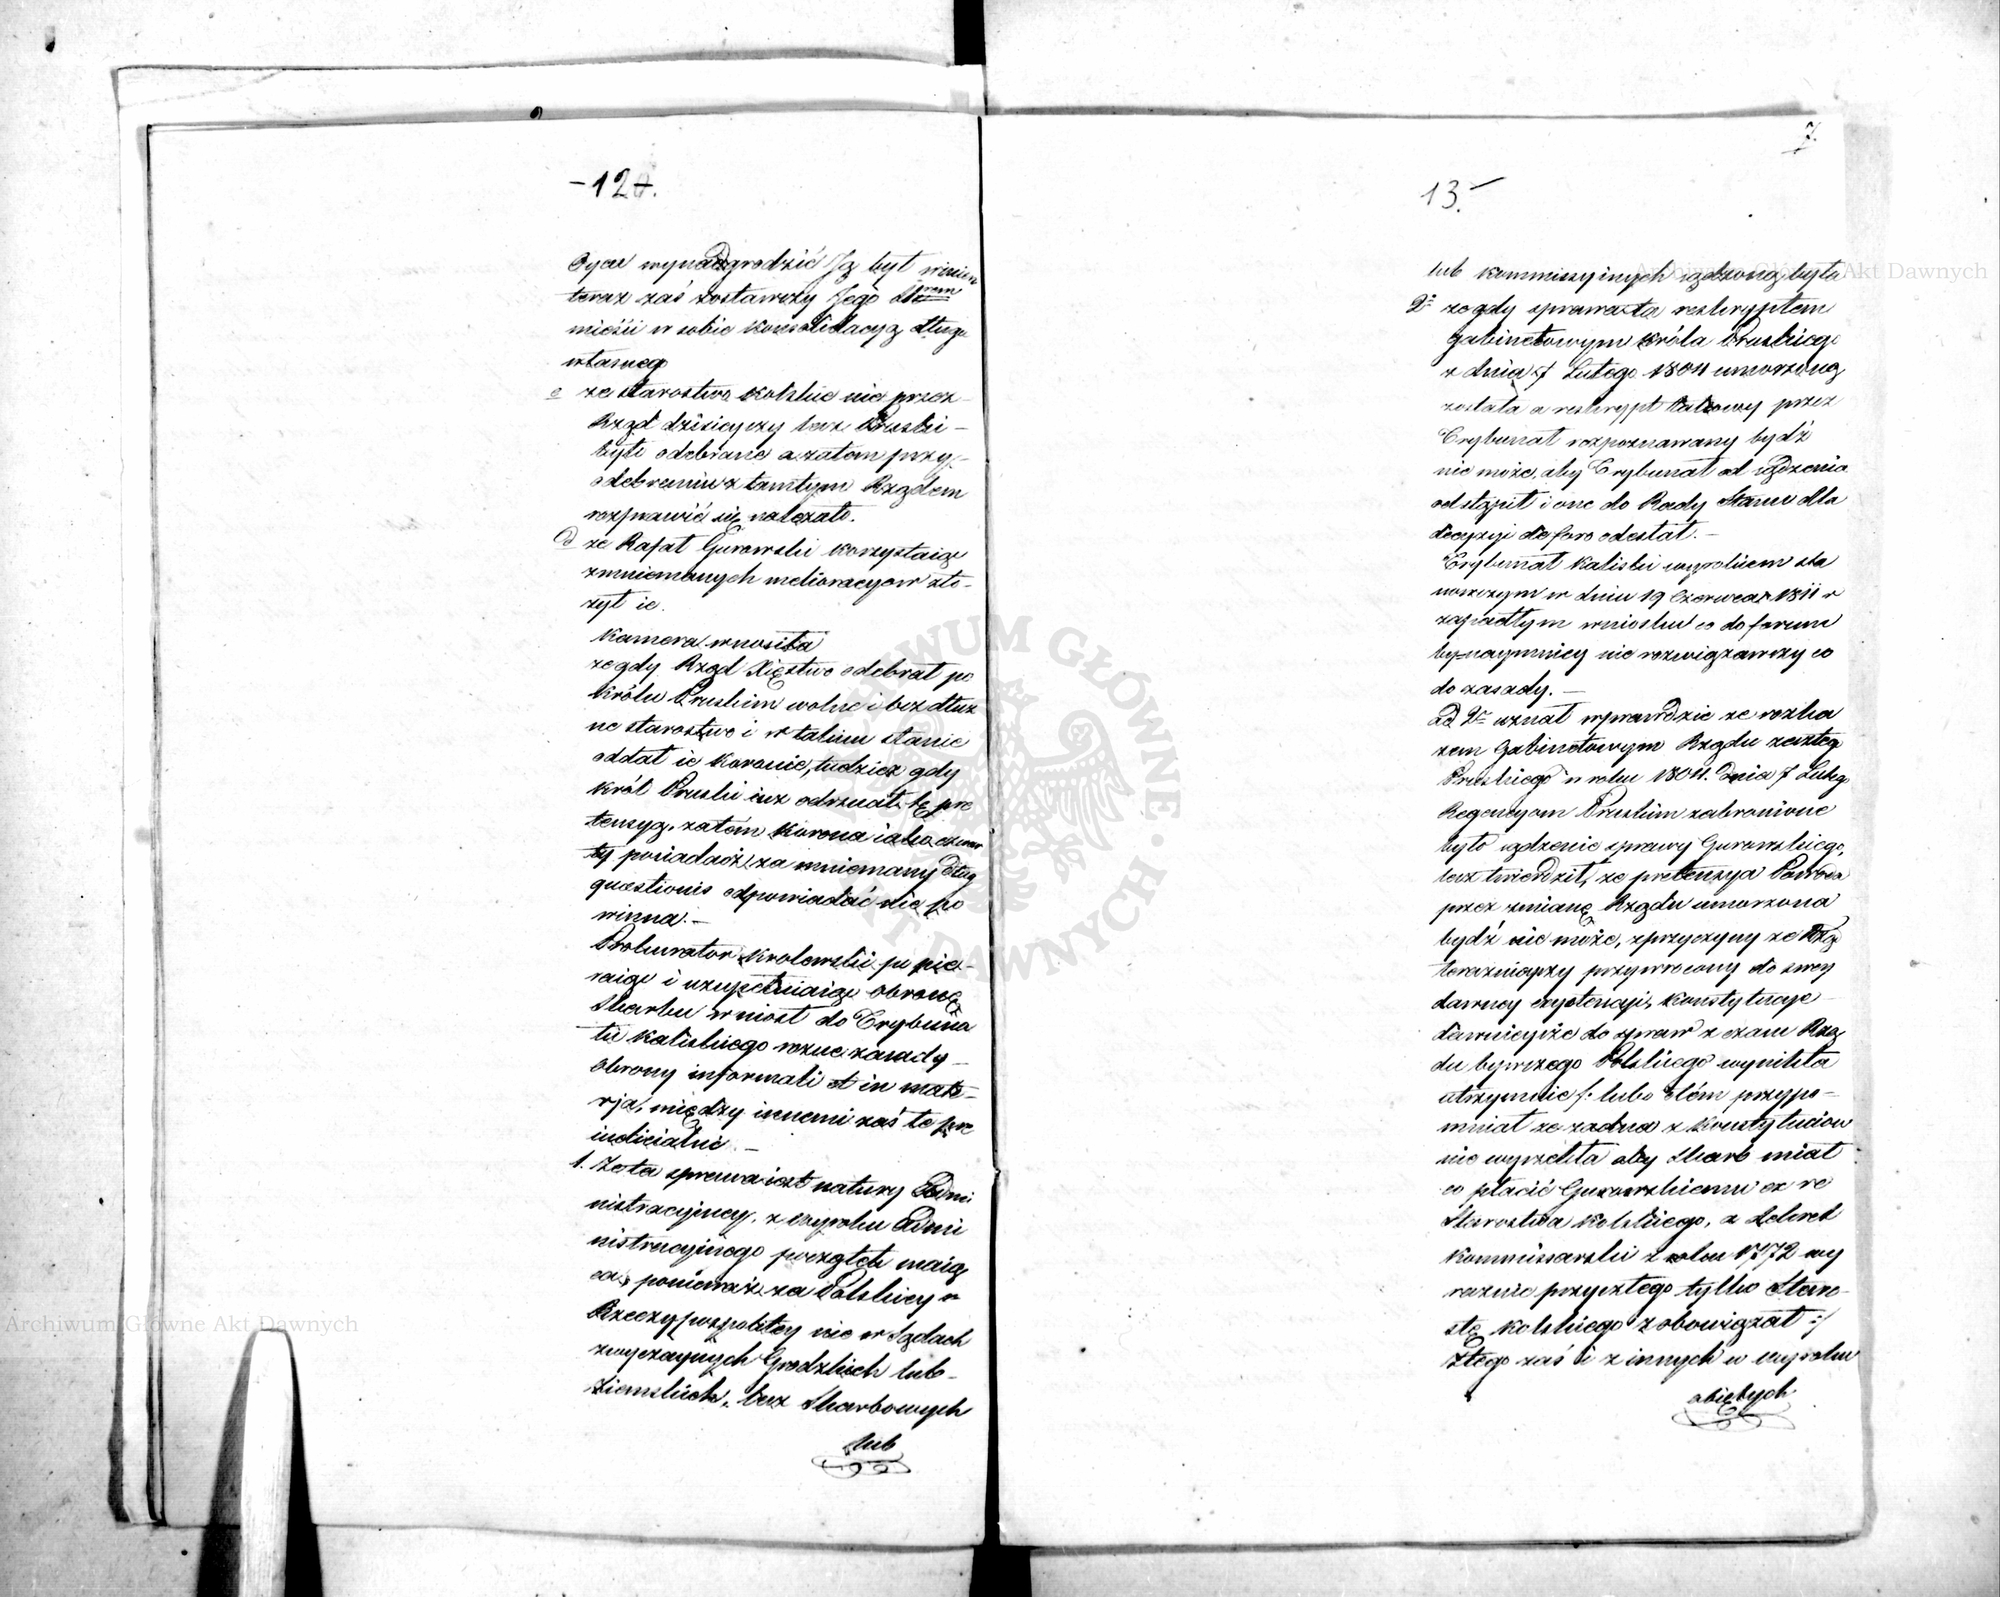 -12.
Oyca wynadgrodzić Ją był winien
teraz zaś zostawszy Jego
mieści w sobie konsolidacyą długu
własnego
c że starostwo kolskie nie przez
Rząd dzisieyszy lecz Pruski
było odebrane a zatem przy
odebraniu z tamtym Rządem
rozprawić się należało.
d że Rafał Gurowski korzystaiąc
z mniemanych melioracyow zło-
żył ie.
Kamera wnosiła
że gdy Rząd Xięstwa odebrał po
Królu Pruskim wolne i bez dłuż
ne starostwo i w takim stanie
oddał ie koronie, tudzież gdy
król Pruski iuż odrzucał tę pre
tensyą, zatem korona iako
ty posiadacz za mniemany dług
quaestionis odpowiadać nie po
winna.-
Prokurator krolewski po pie-
raiąc i uzupełniaiąc obronę
skarbu wniosł do Trybuna
łu kaliskiego rożne zasady
obrony informali et in mate-
rja, między innemi zaś te pre
iudicialne -
1. Że ta sprawa iest natury Admi
nistracyiney, z wyroku Admi
nistracyinego początek maią
ca, ponieważ za Polskiey
Rzeczypospolitey nie w Sądach
zwyczaynych Grodzkich lub
Ziemskich, lecz Skarbowych
lub
7.
13.
lub kommissyinych sądzoną była
2° że gdy sprawa ta reskryptem
gabinetowym Króla Pruskiego
z dnia 7 Lutego 1804 umorzoną
została a reskrypt takowy przez
Trybunał rozpoznawany bydź
nie może, aby Trybunał od sądzenia
odstąpił i one do Rady Stanu dla
decyzyi de foro odesłał. -
Trybunał Kaliski wyrokiem sta
nowczym w dniu 19 Czerwca 1811 r
zapadłym wniosku co do forum
by naymniey nie rozwiązawszy co
do zasady. -
ad 2° uznał wprawdzie że rozka
zem Gabinetowym Rządu zeszłego
Pruskiego w roku 1804. dnia 7 Lutego
Regencyom Pruskim zabronione
było sądzenie sprawy Gurowskiego,
lecz twierdził, że pretensya Powoda
przez zmianę Rządu umorzona
bydź nie może, z przyczyny że Rząd
teraźnieyszy przywrocony do swey
dawney exystencyi, konstytucye
dawnieysze do spraw z czasu Rzą
du bywszego Polskiego wynikła
utrzymuie /: lubo tem przypo-
mniał że żadna z konstytuciow
nie wyrzekła aby Skarb miał
co płacić Gurowskiemu ex re
Starostwa kolskiego, a dekret
kommissarski z roku 1772 wy
raźnie przyszłego tylko Staro-
stę kolskiego zobowiązał :/
z tego zaś i z innych w wyroku
obiętych